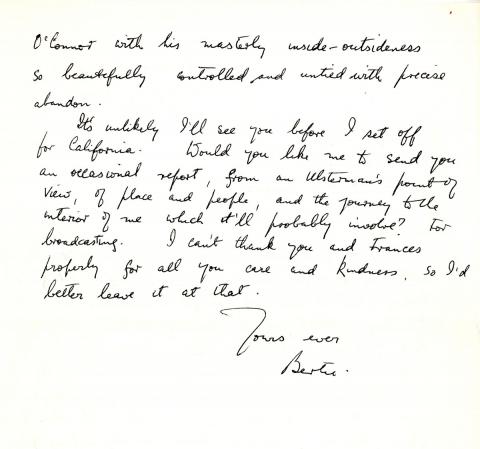 O'Connor with his masterly inside-outsideness
so beautifully controlled and untied with precise
abandon.
It's unlikely I'll see you before I set off
for California. Would you like me to send you
an occasional report, from an Ulsterman's point of
view, of place and people, and the journey to the
interior of me which it'll probably involve? For
broadcasting. I can't thank you and Frances
properly for all you care and kindness, so I'd
better leave it at that.
Yours ever
Bertie.